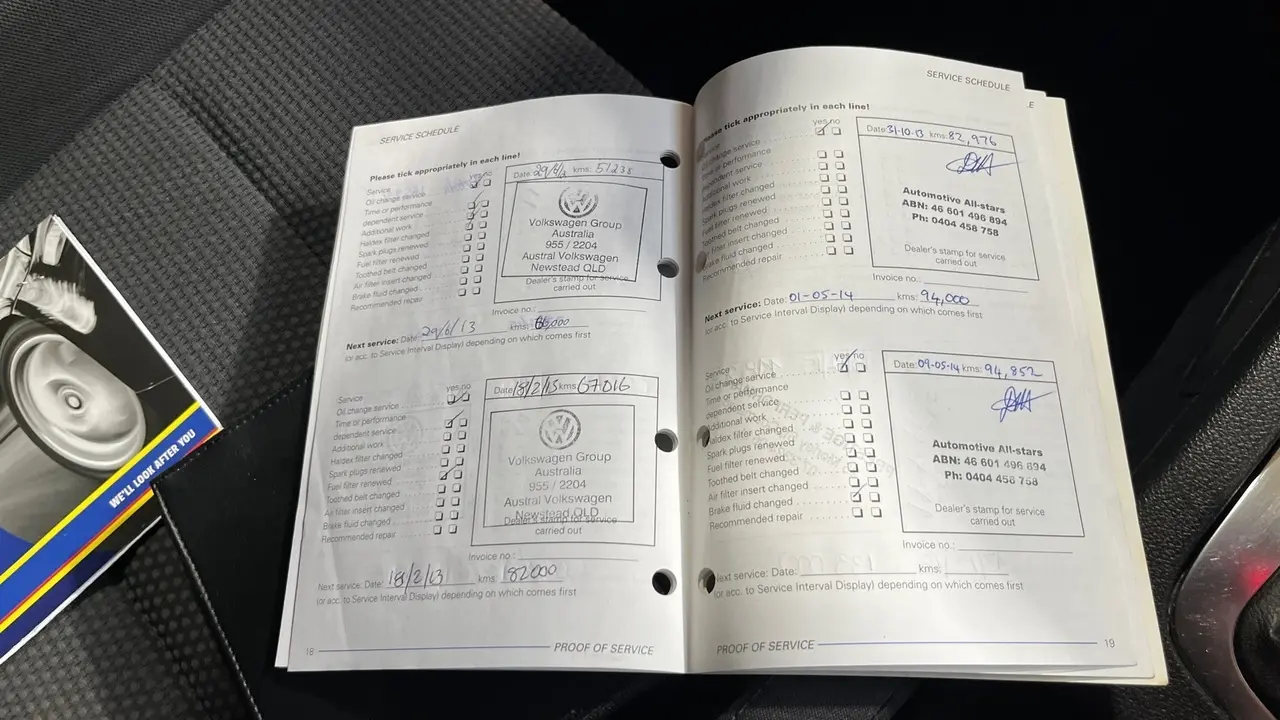 WE'LL LOOK AFTER YOU
SERVICE SCHEDULE
Please tick appropriately in each line!
yes no
Service
Oil change service
Time or performance
dependent service
Additional work
Haldex filter changed
Spark plugs renewed
Fuel filter renewed
Toothed belt changed
Air filter insert changed
Brake fluid changed
Recommended repair
Date kms: 51238
Volkswagen Group
Australia
955 / 2204
Austral Volkswagen
Newstead QLD
Dealer's stamp for service
carried out
Invoice no.:
Next service: Date: 29/6/13 kms: 66,000
(or acc. to Service Interval Display) depending on which comes first
yes no
Service
Oil change service
Time or performance
dependent service
Additional work
Haldex filter changed
Spark plugs renewed
Fuel filter renewed
Toothed belt changed
Air filter insert changed
Brake fluid changed
Recommended repair
Date kms: 67016
Volkswagen Group
Australia
955 / 2204
Austral Volkswagen
Newstead QLD
Dealer's stamp for service
carried out
Invoice no.:
Next service: Date: 18/2/13 kms: 82000
(or acc. to Service Interval Display) depending on which comes first
18 PROOF OF SERVICE
SERVICE SCHEDULE
Please tick appropriately in each line!
yes no
Oil change service
Time or performance
dependent service
Additional work
Haldex filter changed
Spark plugs renewed
Fuel filter renewed
Toothed belt changed
Air filter insert changed
Brake fluid changed
Recommended repair
Date: 31-10-13 kms: 82,976
Automotive All-stars
ABN: 46 601 496 894
Ph: 0404 458 758
Dealer's stamp for service
carried out
Invoice no.:
Next service: Date: 01-05-14 kms: 94,000
(or acc. to Service Interval Display) depending on which comes first
yes no
Service
Oil change service
Time or performance
dependent service
Additional work
Haldex filter changed
Spark plugs renewed
Fuel filter renewed
Toothed belt changed
Air filter insert changed
Brake fluid changed
Recommended repair
Date: 09-05-14 kms: 94,852
Automotive All-stars
ABN: 46 601 496 894
Ph: 0404 458 758
Dealer's stamp for service
carried out
Invoice no.:
Next service: Date: kms:
(or acc. to Service Interval Display) depending on which comes first
PROOF OF SERVICE 19